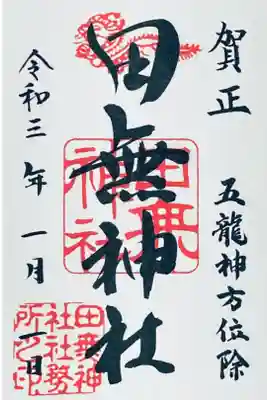 賀正
五龍神方位除
田無神社
田無
神社
令和三年一月一日
田無神
社社務
所之印